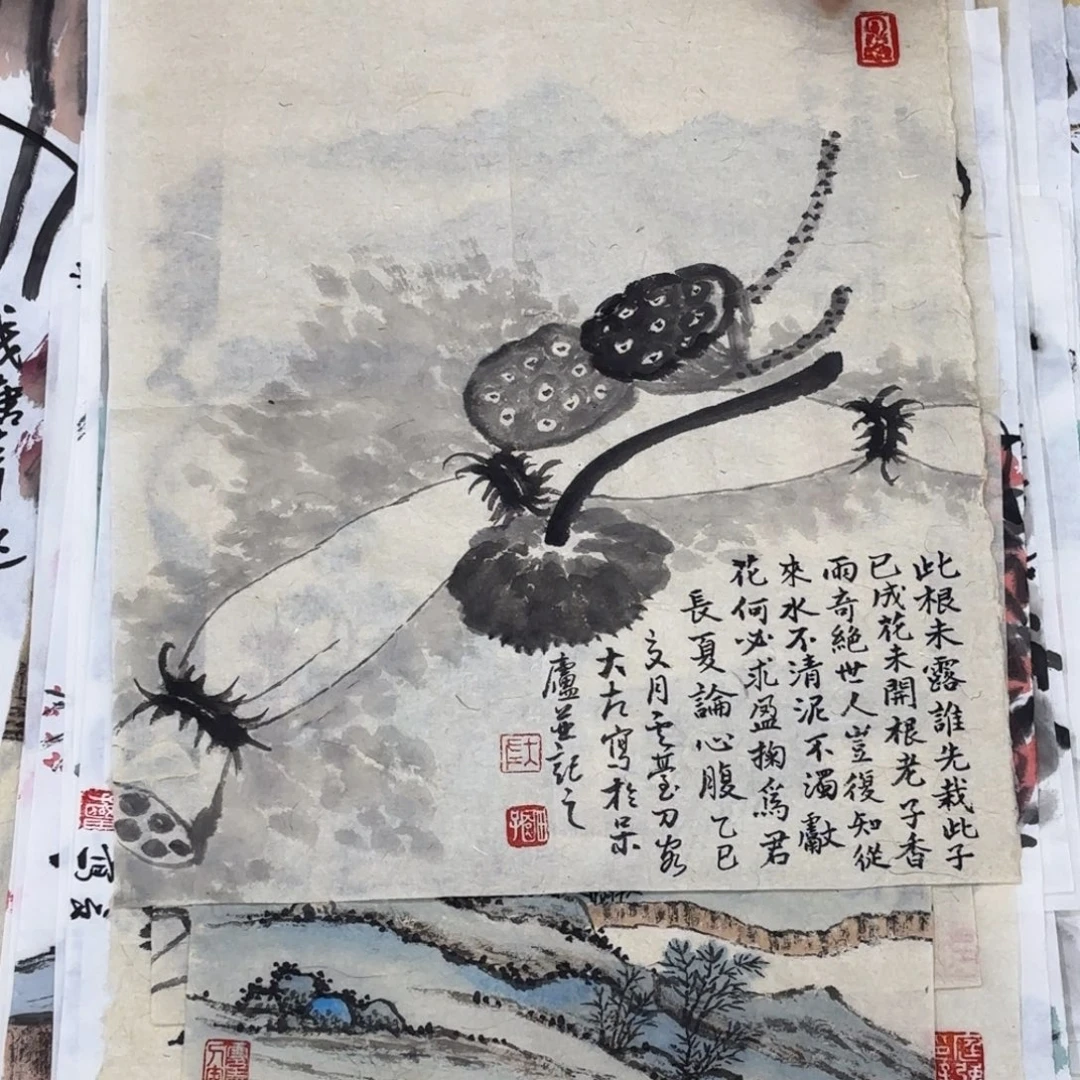 此根未露誰先栽此子
已成花未開根老子香
兩奇絕世人豈復知從
來水不清泥不濁獻
花何必求盈掬爲君
長夏論心腹乙巳
月雲臺刀客
大左寫於呆
廬並記之